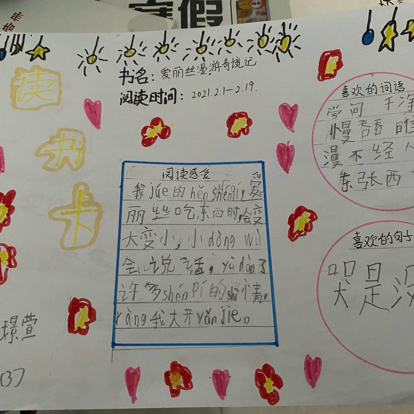 寒假
书名：爱丽丝漫游奇境记
阅读时间：2021.2.1－2.19.
读
书
卡
阅读感受
我jué的hěn shénjí，爱
丽丝吃东西时会变
大变小，小dòng wù
会说话，yù dào了
许多shén pí的事情。
ràng我大开yǎn jiè。
喜欢的词语
学问 干净
慢吞吞
漫不经
东张西
喜欢的句子
哭是没
璟萱
(3)